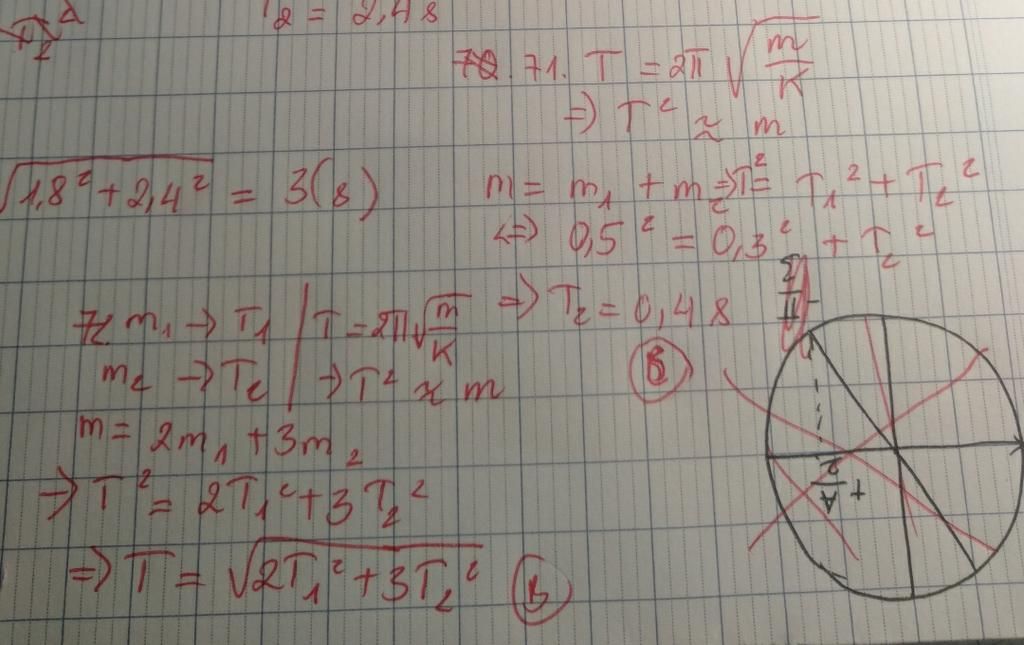 T₂ = 2,4 s
71. T = 2π√(m/K)
=> T² ≈ m
√(1,8² + 2,4²) = 3(s)
m = m₁ + m₂ => T² = T₁² + T₂²
<=> 0,5² = 0,3² + T₂²
=> T₂ = 0,4 s
B
72 m₁ -> T₁ | T = 2π√(m/K)
m₂ -> T₂ | -> T² ≈ m
m = 2m₁ + 3m₂
-> T² = 2T₁² + 3T₂²
=> T = √(2T₁² + 3T₂²) B
π/3
+A/2